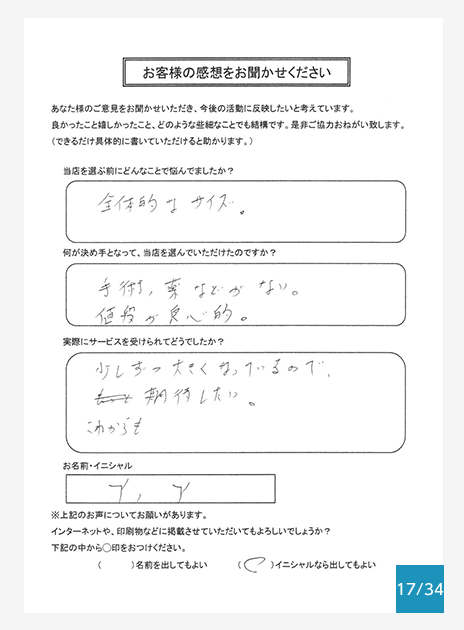 お客様の感想をお聞かせください
あなた様のご意見をお聞かせいただき、今後の活動に反映したいと考えています。
良かったこと嬉しかったこと、どのような些細なことでも結構です。是非ご協力おねがい致します。
(できるだけ具体的に書いていただけると助かります。)
当店を選ぶ前にどんなことで悩んでましたか?
全体的なサイズ。
何が決め手となって、当店を選んでいただけたのですか?
手術,薬などがない。
値段が良心的。
実際にサービスを受けられてどうでしたか?
少しずつ大きくなっているので、
期待したい。
これからも
お名前・イニシャル
Y,Y
※上記のお声についてお願いがあります。
インターネットや、印刷物などに掲載させていただいてもよろしいでしょうか?
下記の中から○印をおつけください。
( )名前を出してもよい (○)イニシャルなら出してもよい
17/34